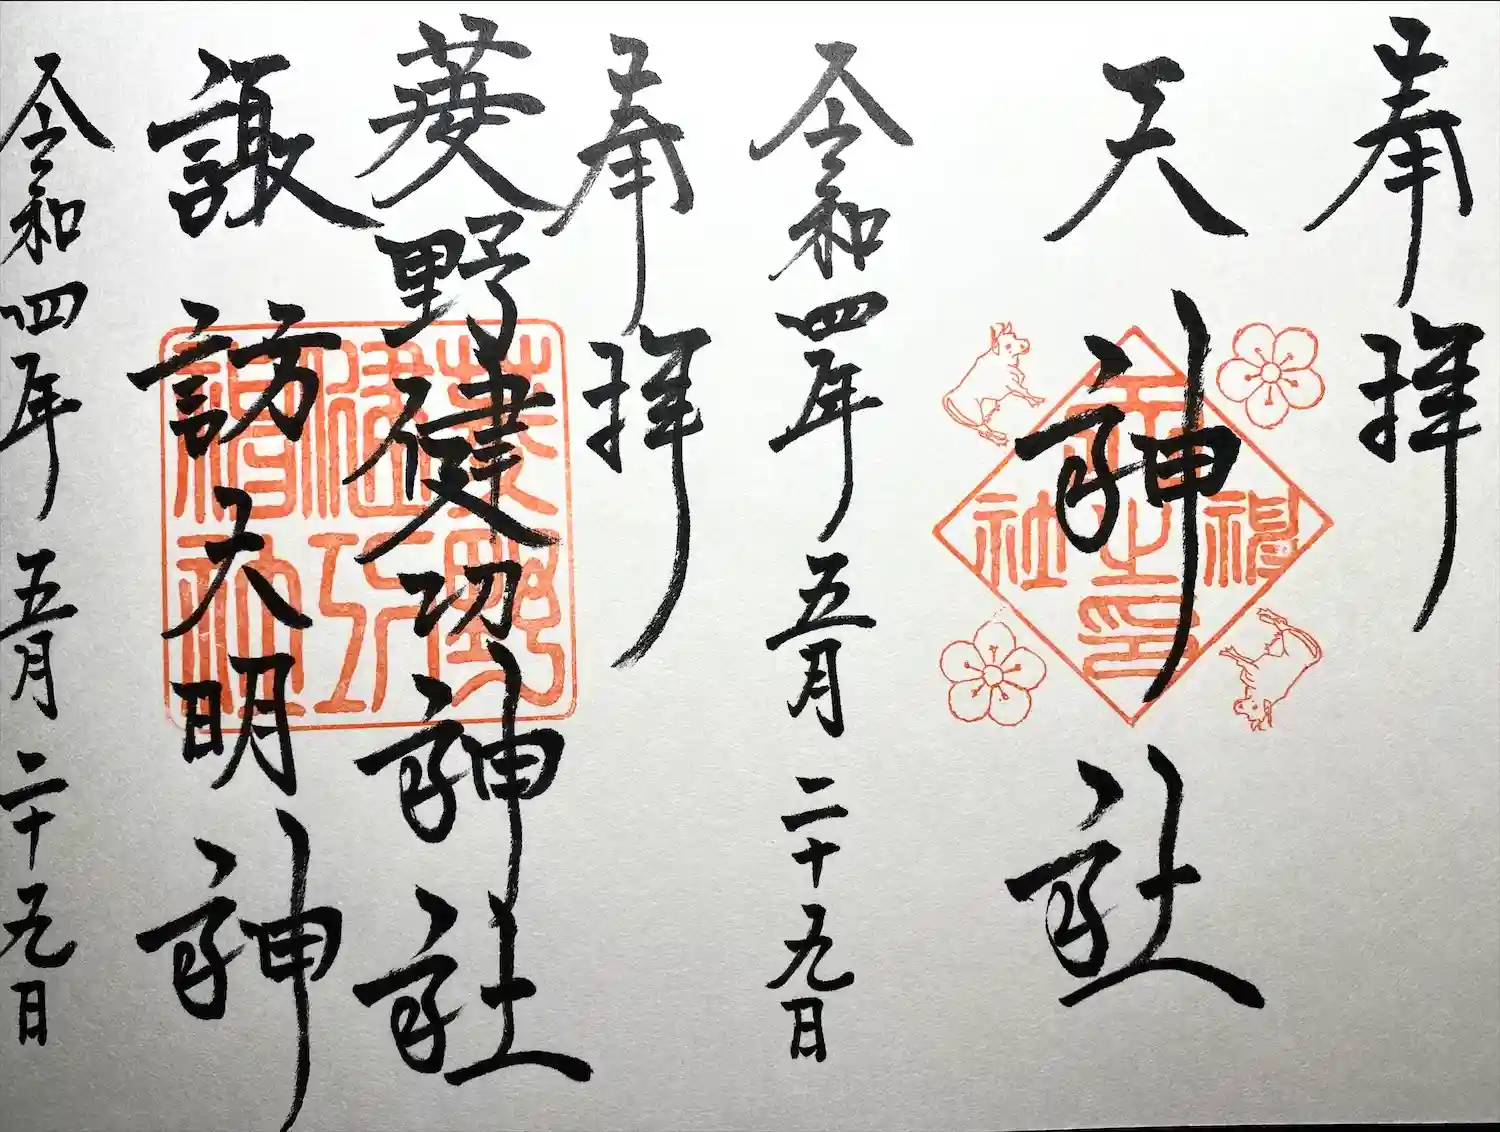 奉拝
天神社
天神社之印
令和四年五月二十九日
奉拝
菱野健功神社
諏訪大明神
菱野健功神社
令和四年五月二十九日